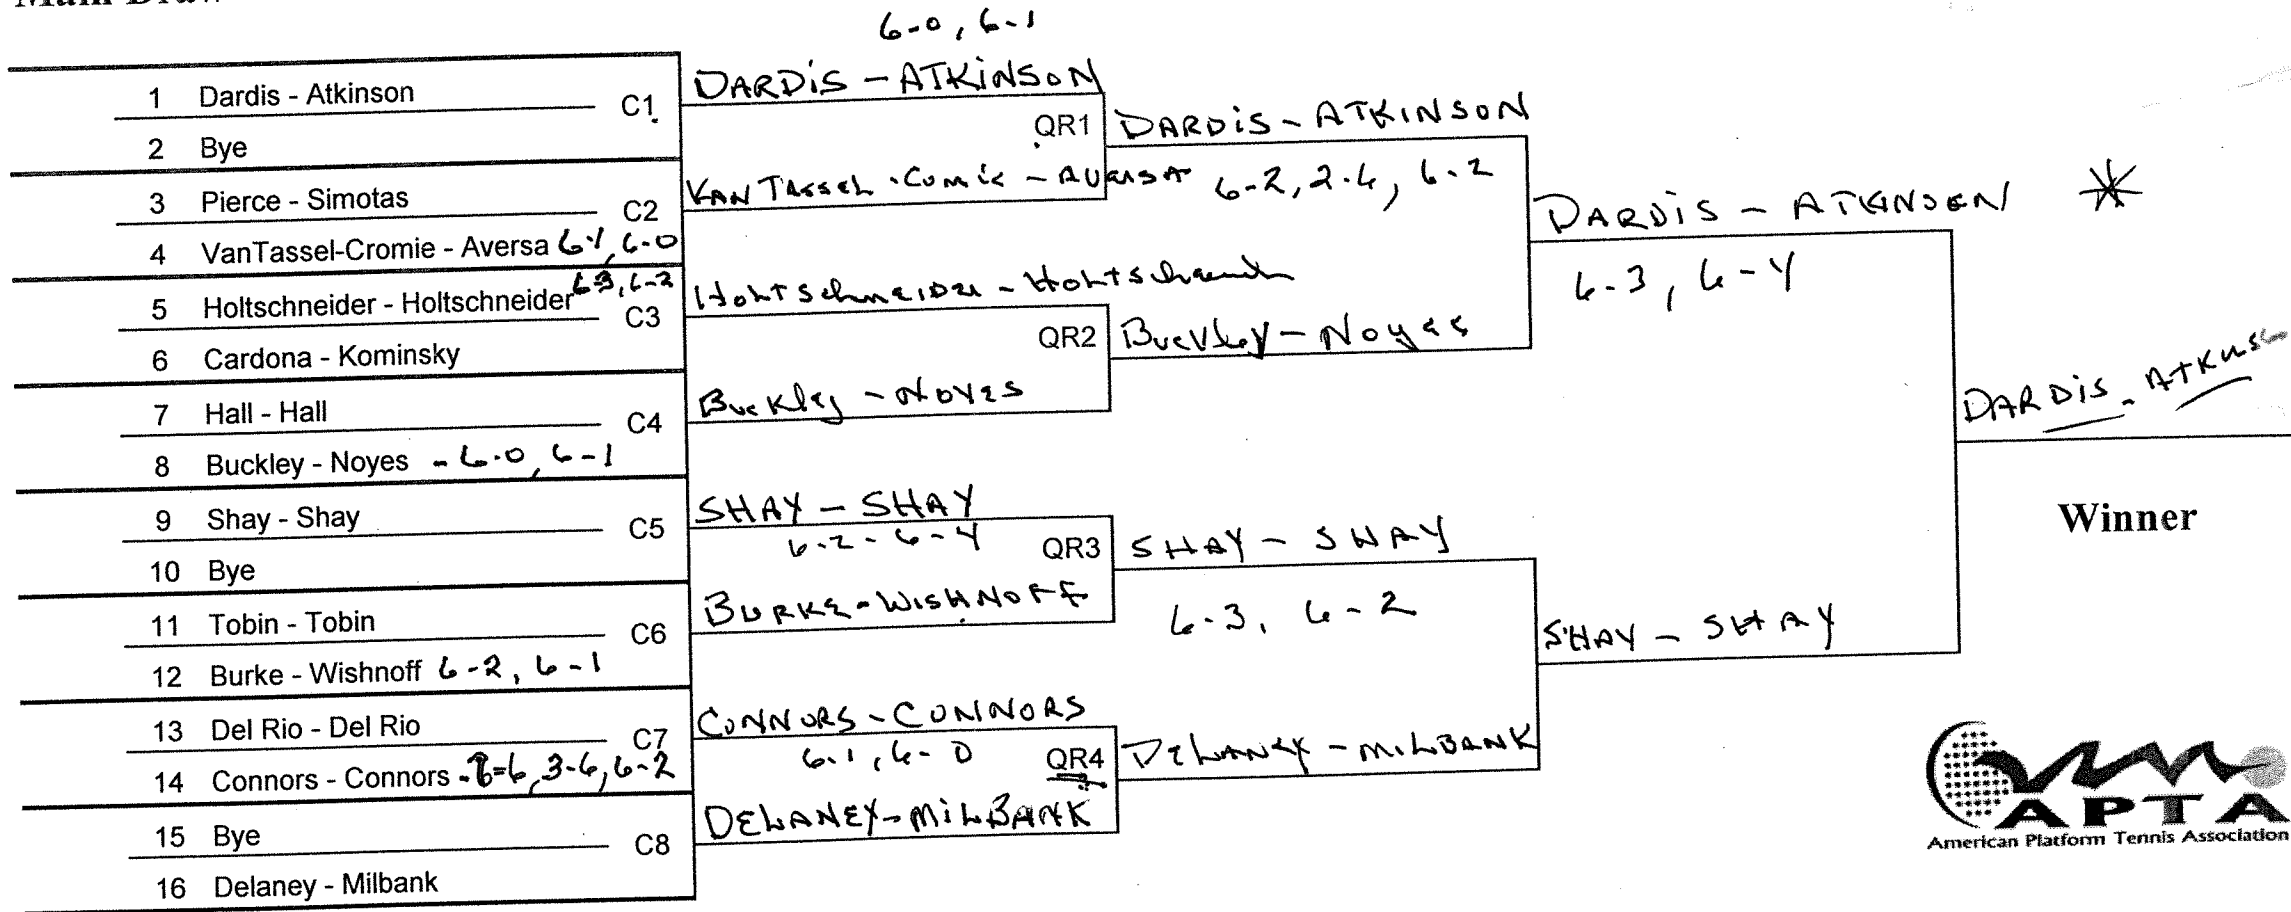 6-0, 6-1
1 Dardis - Atkinson
C1
2 Bye
3 Pierce - Simotas
C2
4 VanTassel-Cromie - Aversa 6-1, 6-0
5 Holtschneider - Holtschneider 6-3, 6-2
C3
6 Cardona - Kominsky
7 Hall - Hall
C4
8 Buckley - Noyes - 6-0, 6-1
9 Shay - Shay
C5
10 Bye
11 Tobin - Tobin
C6
12 Burke - Wishnoff 6-2, 6-1
13 Del Rio - Del Rio
C7
14 Connors - Connors - 6, 3-6, 6-2
15 Bye
C8
16 Delaney - Milbank
DARDIS - ATKINSON
QR1
VAN TASSEL
HOLTSCHNEIDER
QR2
Buckley - NOYES
SHAY - SHAY
6-2 - 6-4
QR3
BURKE - WISHNOFF
CONNORS - CONNORS
6-1, 6-0
QR4
DELANEY - MILBANK
DARDIS - ATKINSON
6-2, 2-6, 6-2
Buckley - Noyes
SHAY - SHAY
6-3, 6-2
DELANEY - MILBANK
DARDIS - ATKINSON
6-3, 6-4
SHAY - SHAY
DARDIS - ATKINSON
Winner
APTA
American Platform Tennis Association